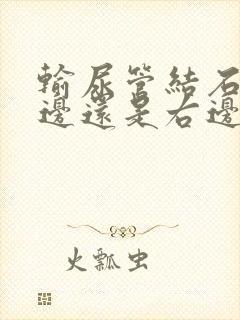 輸尿管結石
邊還是右邊
火瓢虫